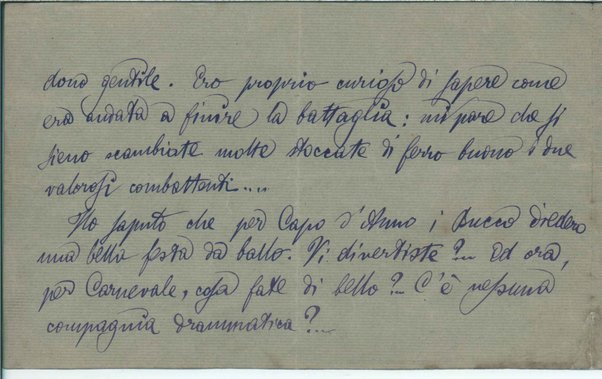 dono gentile. Ero proprio curioso di sapere come
era andata a finire la battaglia: mi pare che si
sieno scambiate molte stoccate di ferro buono i due
valorosi combattenti....
Ho saputo che per Capo d'Anno i Bucco diedero
una bella festa da ballo. Vi divertiste?... Ed ora,
per Carnevale, cosa fate di bello?... C'è nessuna
compagnia drammatica?...